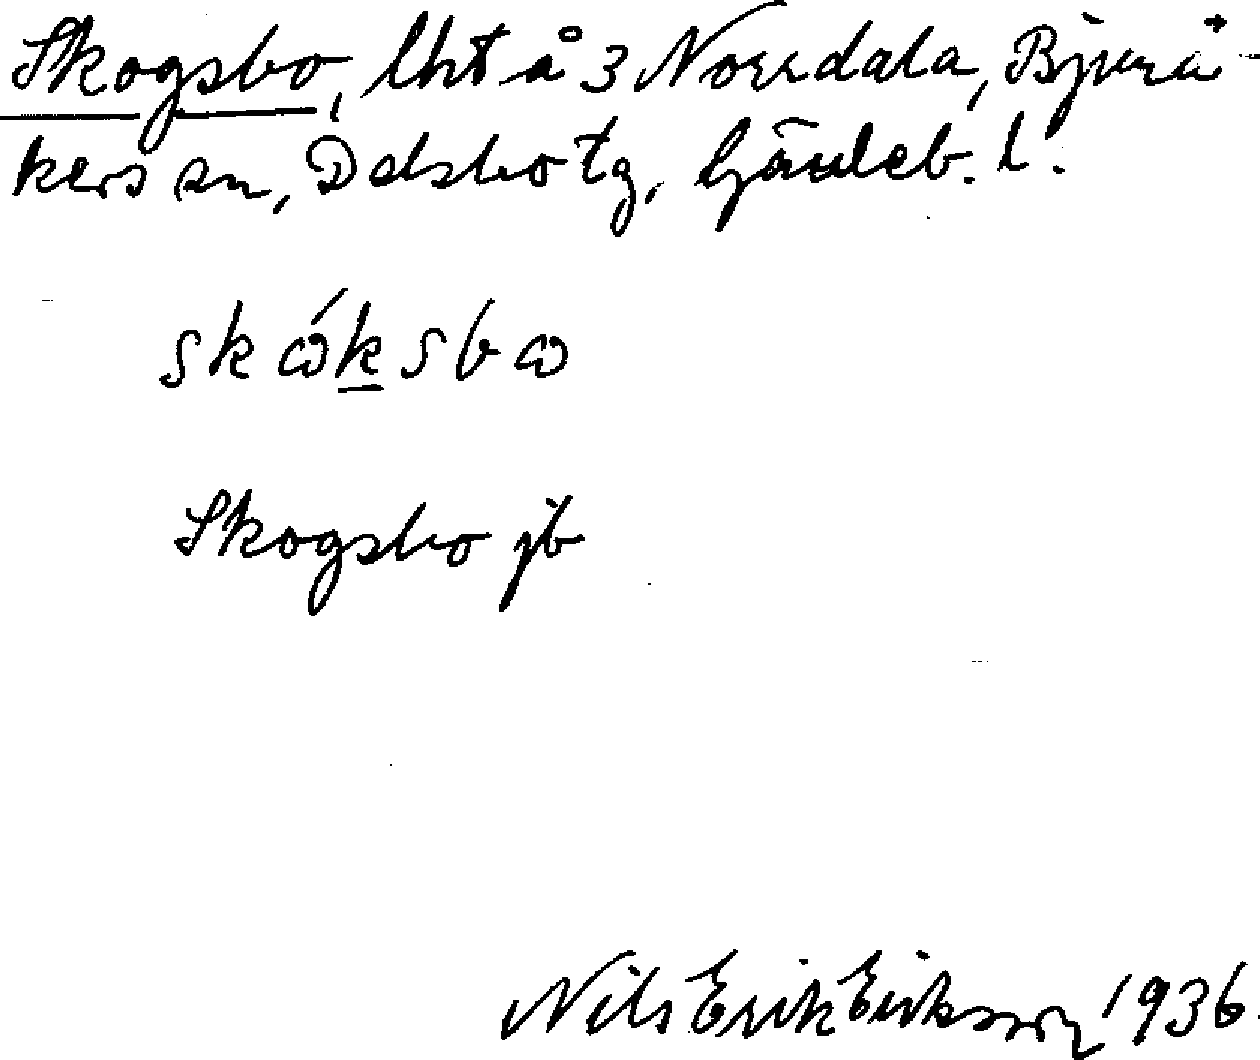 Skogsbo, lht å 3 Norrdala, Bjurå-
kers sn, Delsbo tg, Gävleb. l.
skώksbω
Skogsbo jb
Nils Erik Eriksson 1936.